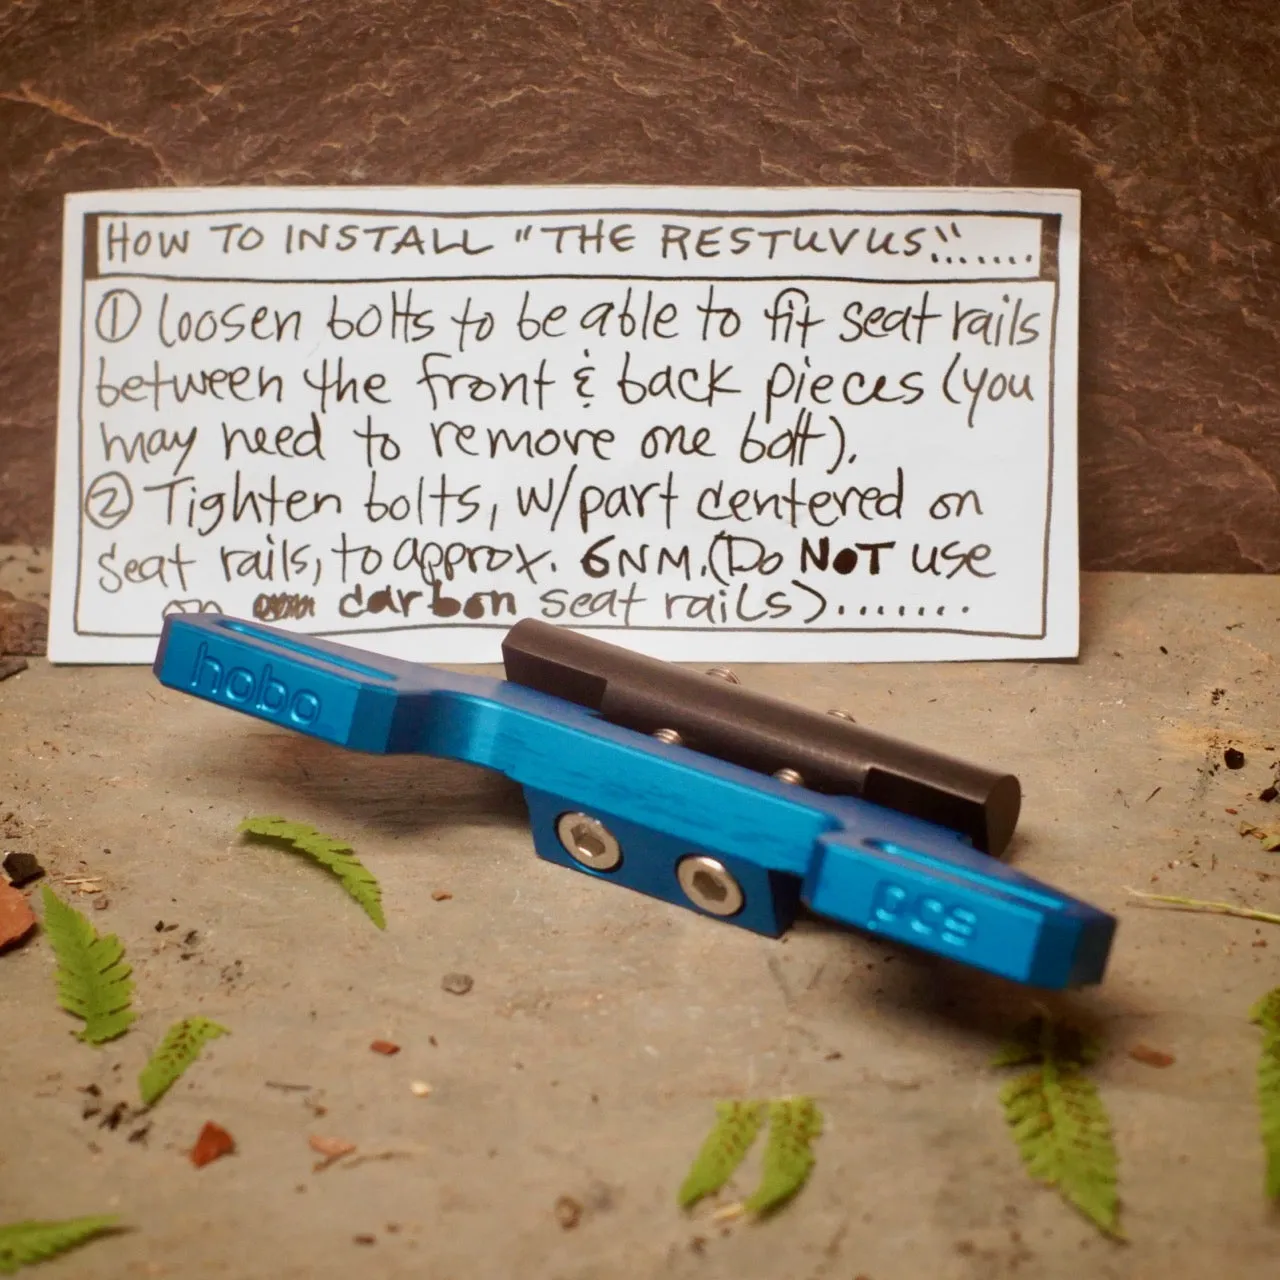 HOW TO INSTALL "THE RESTUVUS".......
① Loosen bolts to be able to fit seat rails
between the front & back pieces (you
may need to remove one bolt).
② Tighten bolts, w/part centered on
seat rails, to approx. 6NM. (Do NOT use
on carbon seat rails).......
hobo
pcs